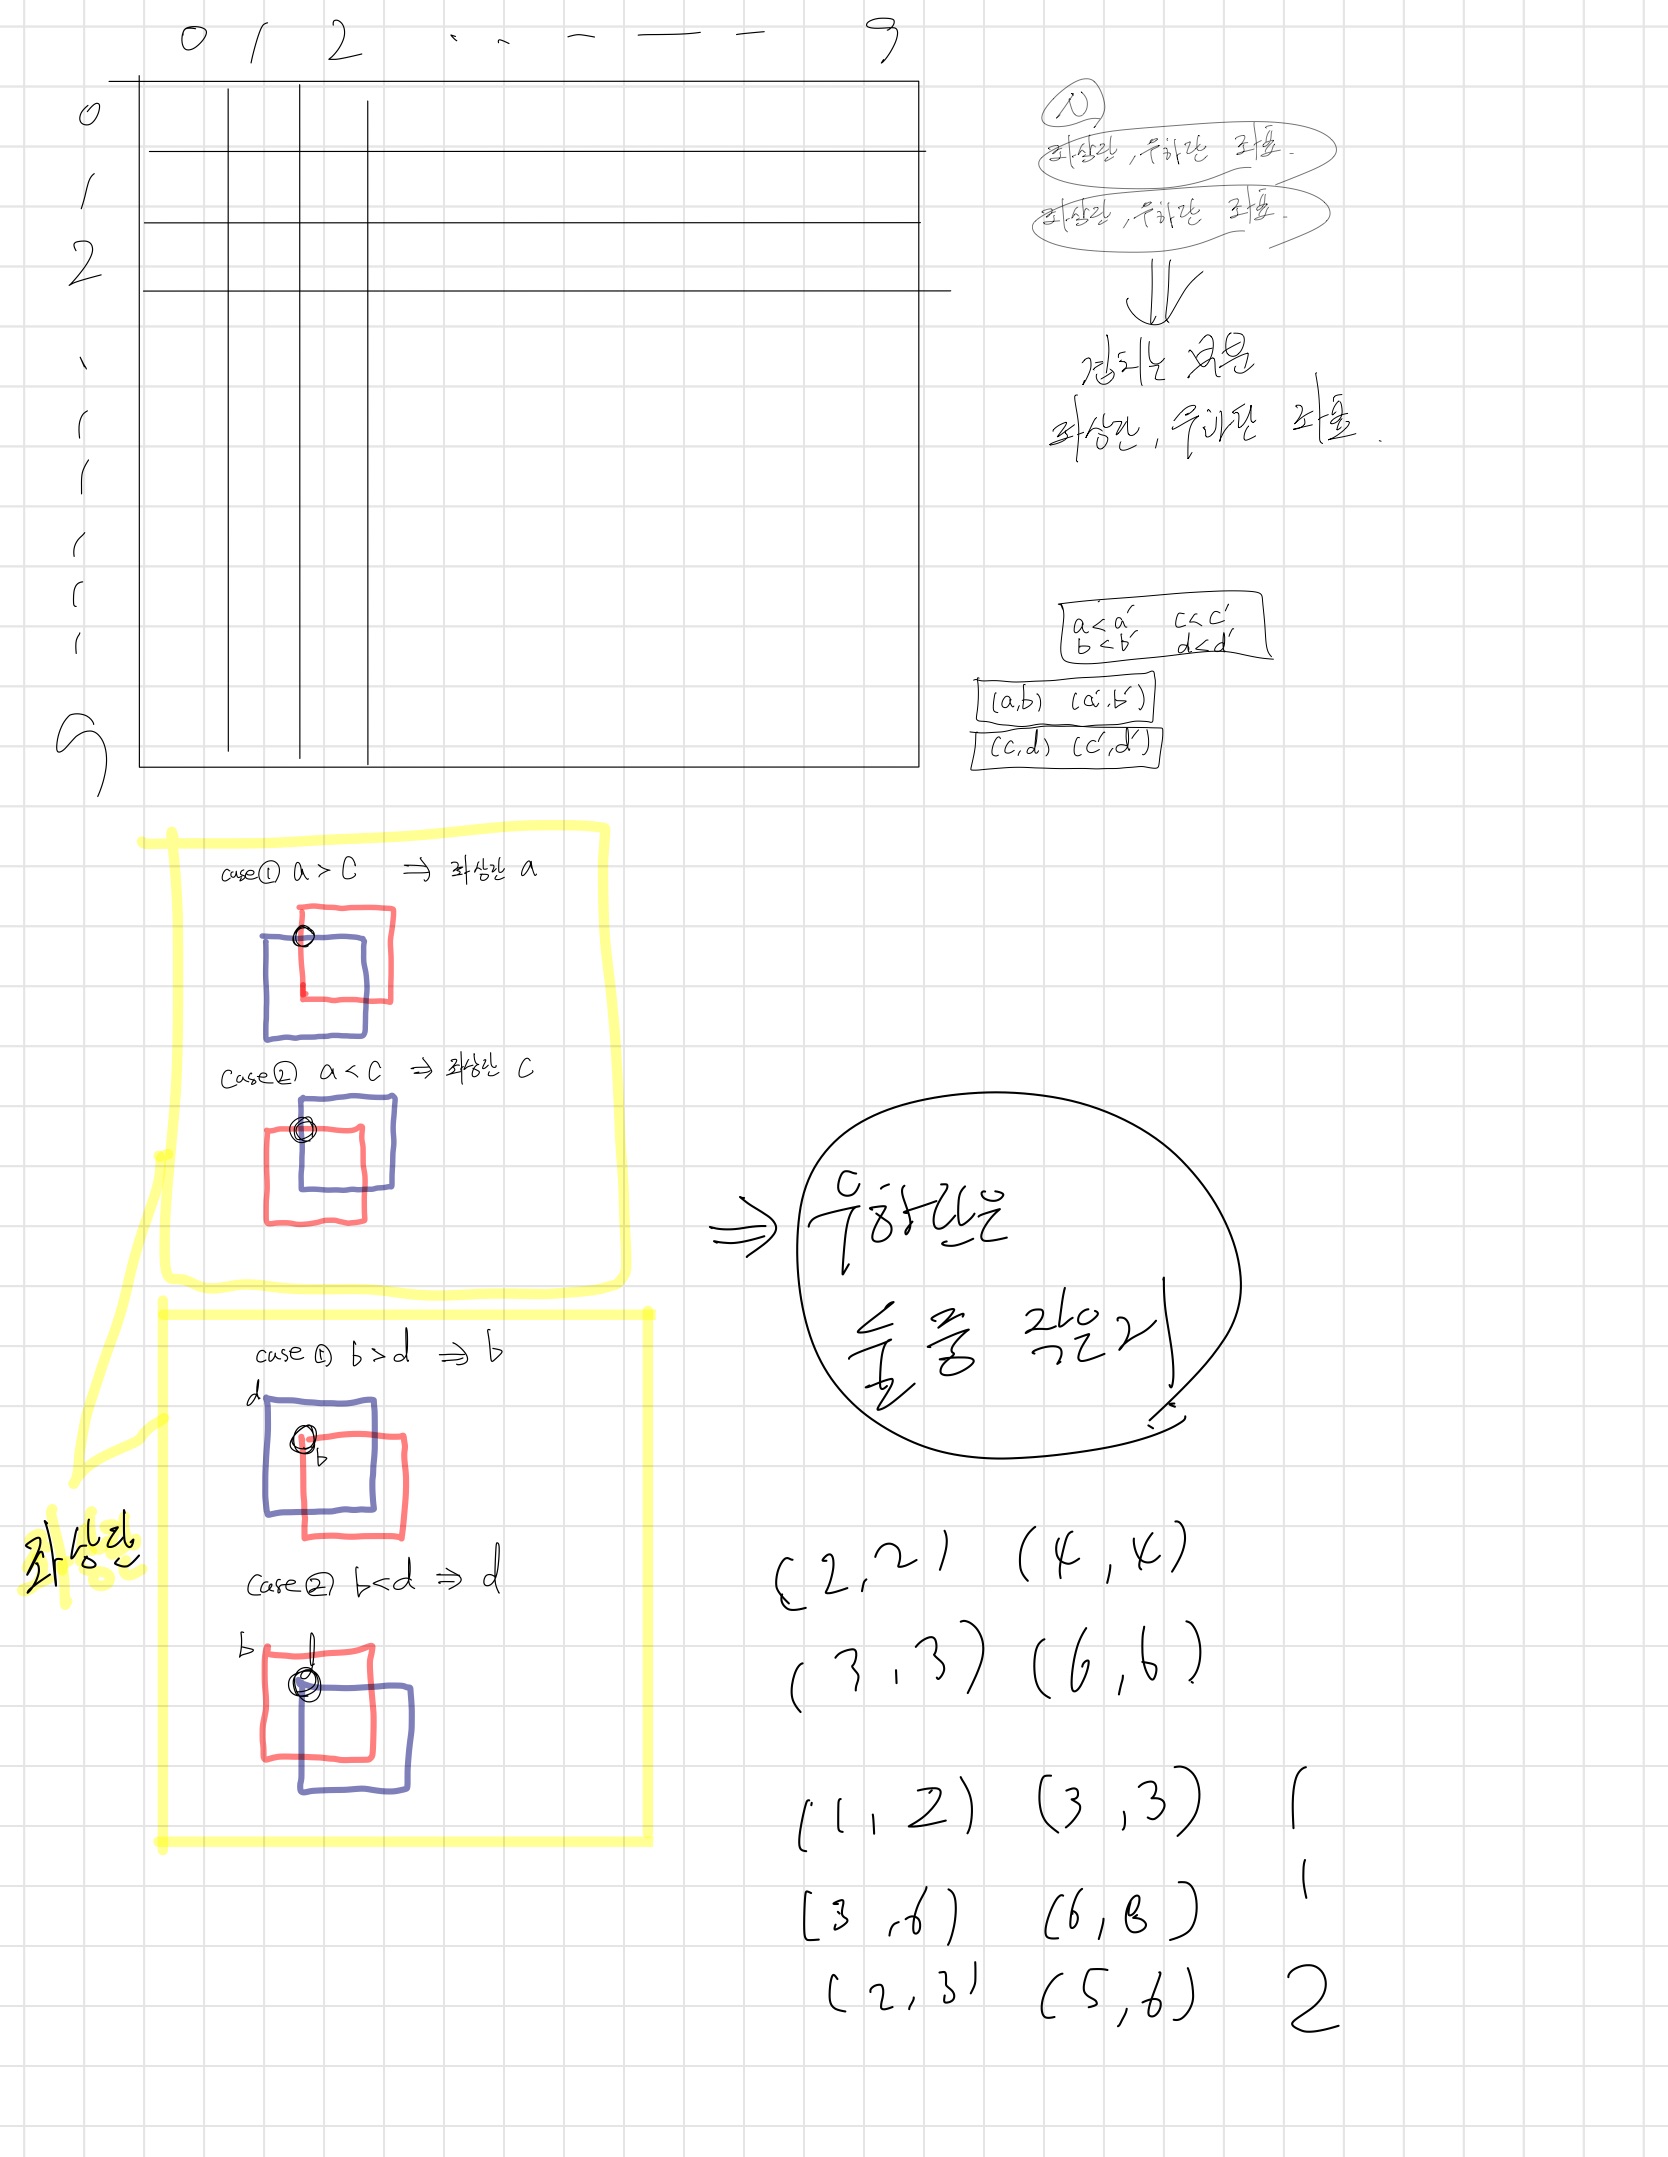 0 1 2 9
0
1
2
9
N
좌상단, 우하단 좌표.
좌상단, 우하단 좌표.
겹되는 부분
좌상단, 우하단 좌표.
a<a' c<c'
b<b' d<d'
(a,b) (a',b')
(c,d) (c',d')
case① a > c ⇒ 좌상단 a
case② a < c ⇒ 좌상단 c
⇒ 우하단은
둘 중 작은거
case① b>d ⇒ b
d
b
case② b<d ⇒ d
b d
좌상단
(2,2) (4,4)
(3,3) (6,6)
(1,2) (3,3) 1
(3,6) (6,8) 1
(2,3) (5,6) 2